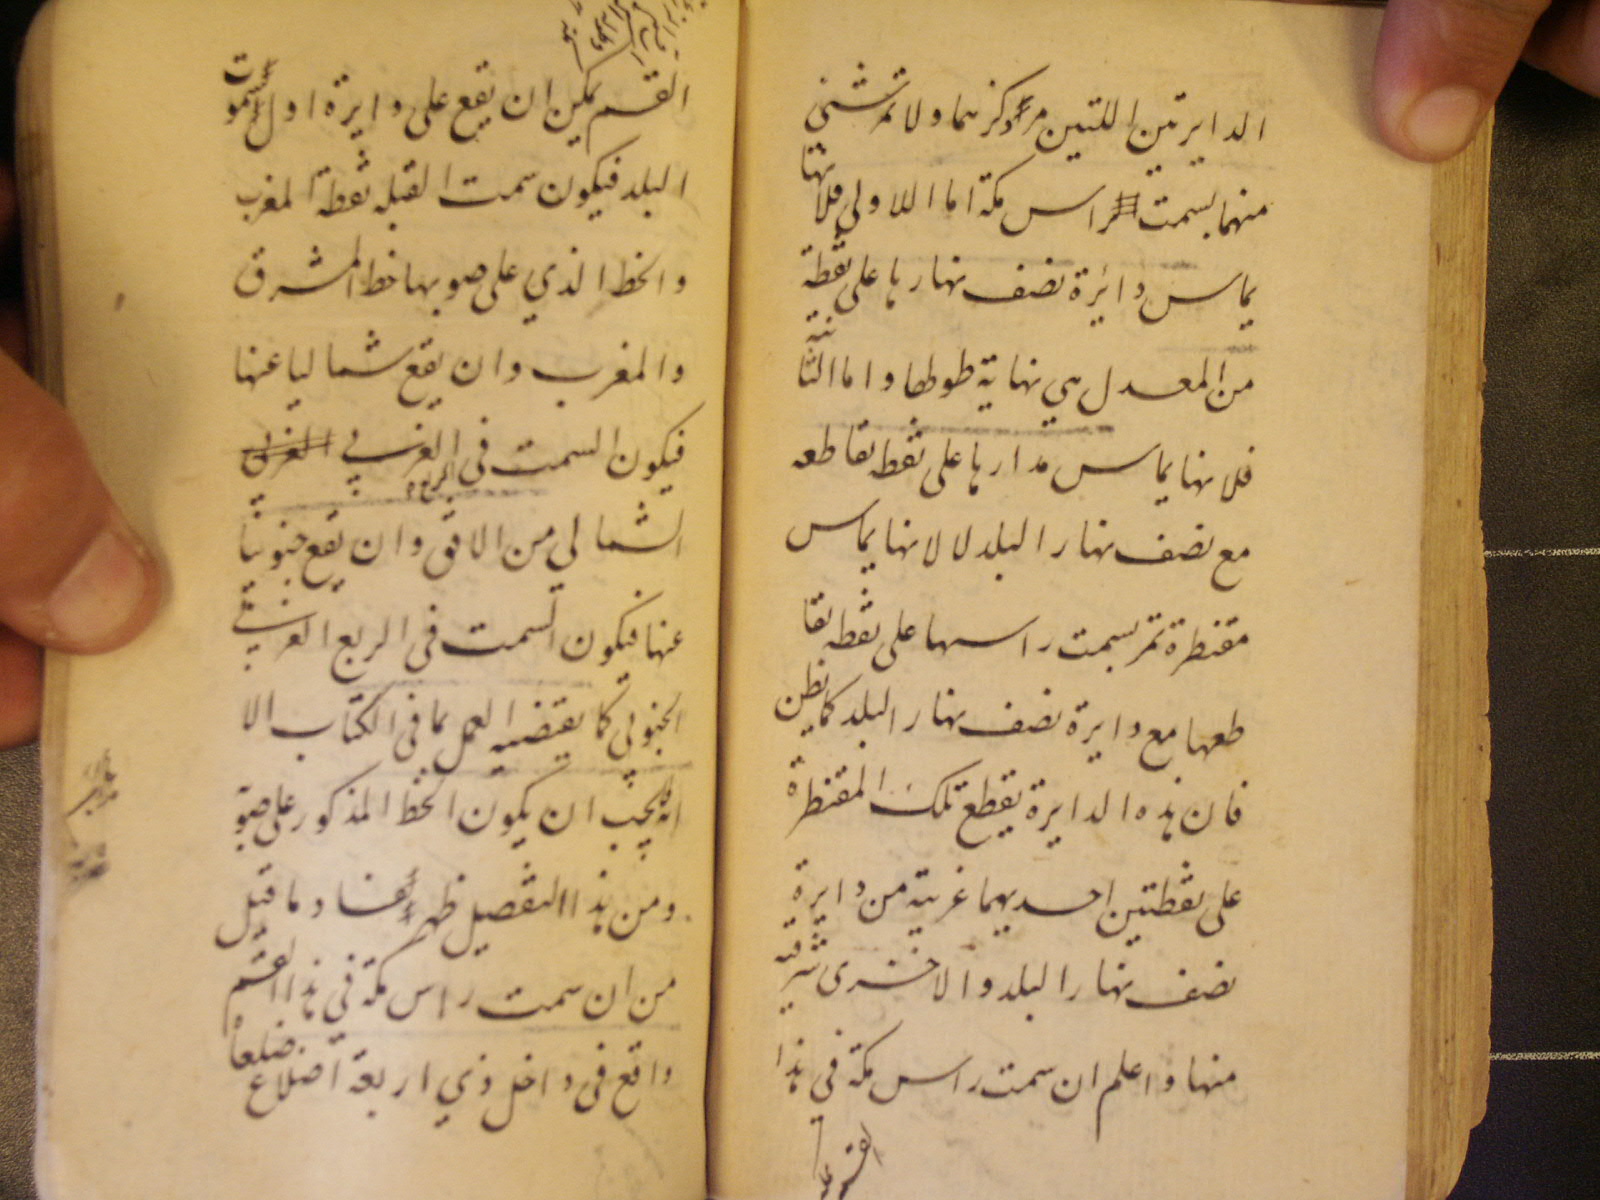 الدايرتين اللتين مر ذكرهما ولا تمر شئ
منهما بسمت راس مكة اما الاولي فلانها
يماس دائرة نصف نهارها على نقطة
من المعدل هي نهاية طولها واما الثانية
فلانها يماس مدارها على نقطه تقاطعه
مع نصف نهار البلد لا لانها يماس
مقنطرة تمر بسمت راسها على نقطه تقا
طعها مع دايرة نصف نهار البلد كما يظن
فان هذه الدايرة يقطع تلك المقنطرة
على نقطتين احديهما غربية من دايرة
نصف نهار البلد والاخرى شرقية
منها واعلم ان سمت راس مكة في هذا
القسم
القسم يمكن ان يقع على دايرة اول السموت
البلد فيكون سمت القبله نقطة المغرب
والخط الذي على صوبها خط المشرق
والمغرب وان يقع شماليا عنها
فيكون السمت في الربع الغربي
الشمالي من الافق وان يقع جنوبيا
عنها فيكون السمت في الربع الغربي
الجنوبي كما يقتضيه العمل بما في الكتاب الا
انه يجب ان يكون الخط المذكور على صوبة
ومن هذا التفصيل ظهر فساد ما قيل
من ان سمت راس مكة في هذا القسم
واقع في داخل ذي اربعة اضلاع